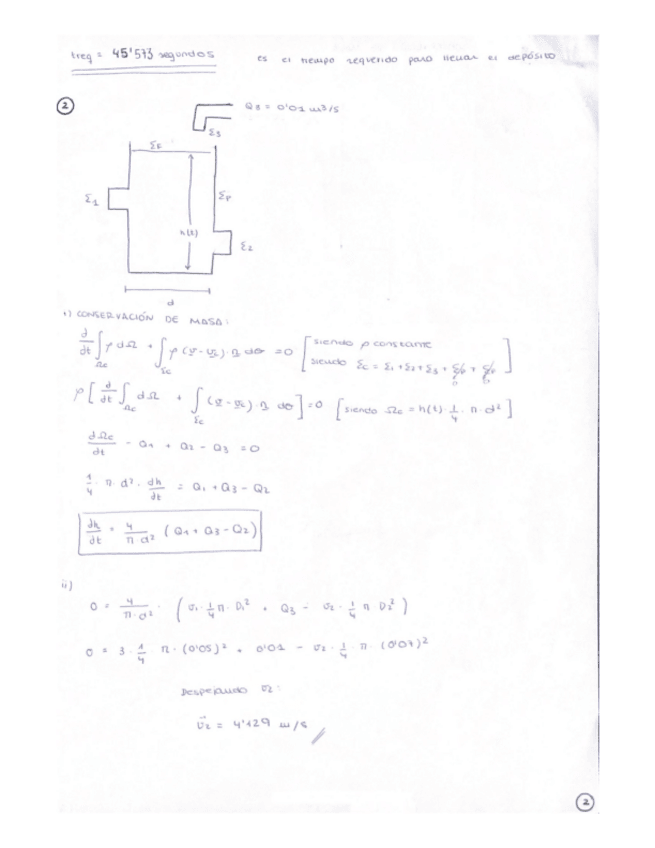 treq = 45'573 segundos es el tiempo requerido para llenar el depósito
2
Q3 = 0'01 m³/s
Σ3
ΣE
Σ1
Σp
h(t)
Σ2
d
i) CONSERVACIÓN DE MASA:
d/dt ∫Ωc ρ dΩ + ∫Σc ρ (v - vc) · n dσ = 0 [siendo ρ constante
siendo Σc = Σ1 + Σ2 + Σ3 + ΣE + Σp]
0 0
ρ [ d/dt ∫Ωc dΩ + ∫Σc (v - vc) · n dσ ] = 0 [siendo Ωc = h(t) · 1/4 · π · d²]
dΩc/dt - Q1 + Q2 - Q3 = 0
1/4 · π · d² · dh/dt = Q1 + Q3 - Q2
dh/dt = 4/π·d² (Q1 + Q3 - Q2)
ii)
0 = 4/π·d² · (v1 · 1/4 π · D1² + Q3 - v2 · 1/4 π · D2²)
0 = 3 · 1/4 π · (0'05)² + 0'01 - v2 · 1/4 · π · (0'07)²
Despejando v2:
v2 = 4'129 m/s
2